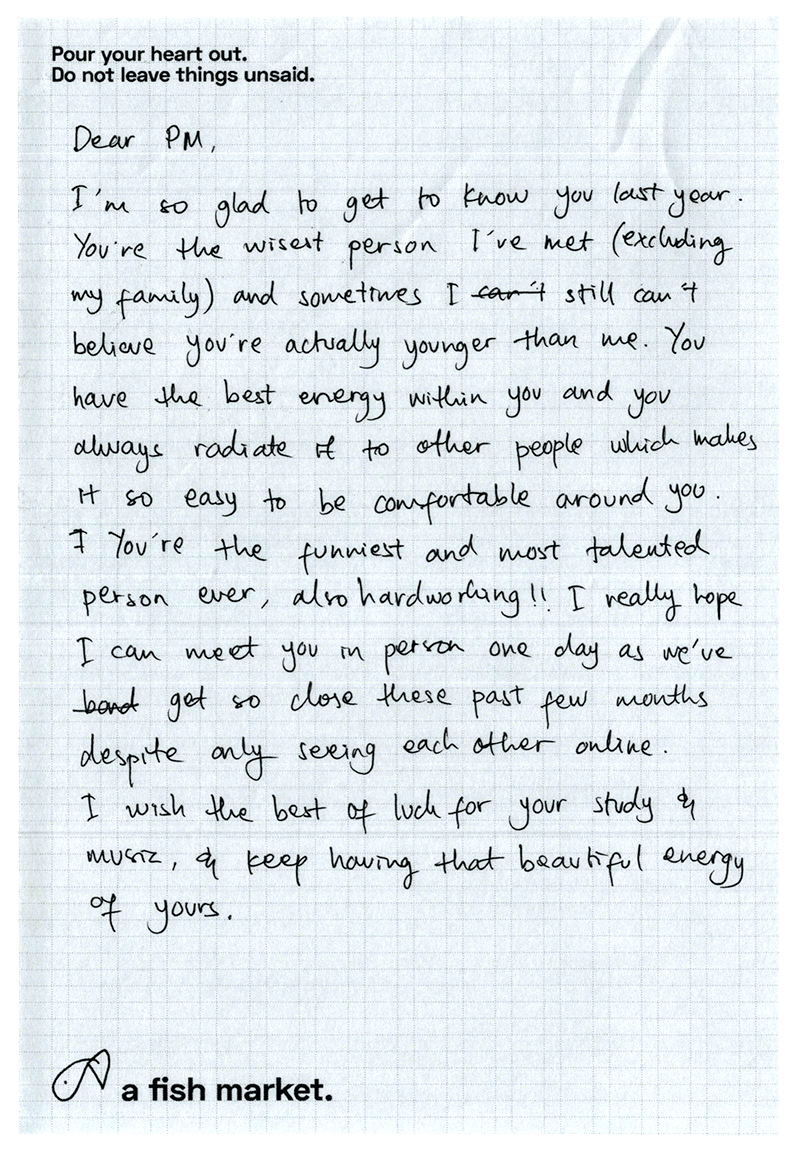 Pour your heart out.
Do not leave things unsaid.
Dear PM,
I'm so glad to get to know you last year.
You're the wisest person I've met (excluding
my family) and sometimes I can't still can't
believe you're actually younger than me. You
have the best energy within you and you
always radiate it to other people which makes
it so easy to be comfortable around you.
I You're the funniest and most talented
person ever, also hardworking!! I really hope
I can meet you in person one day as we've
bond get so close these past few months
despite only seeing each other online.
I wish the best of luck for your study &
music, & keep having that beautiful energy
of yours.
a fish market.